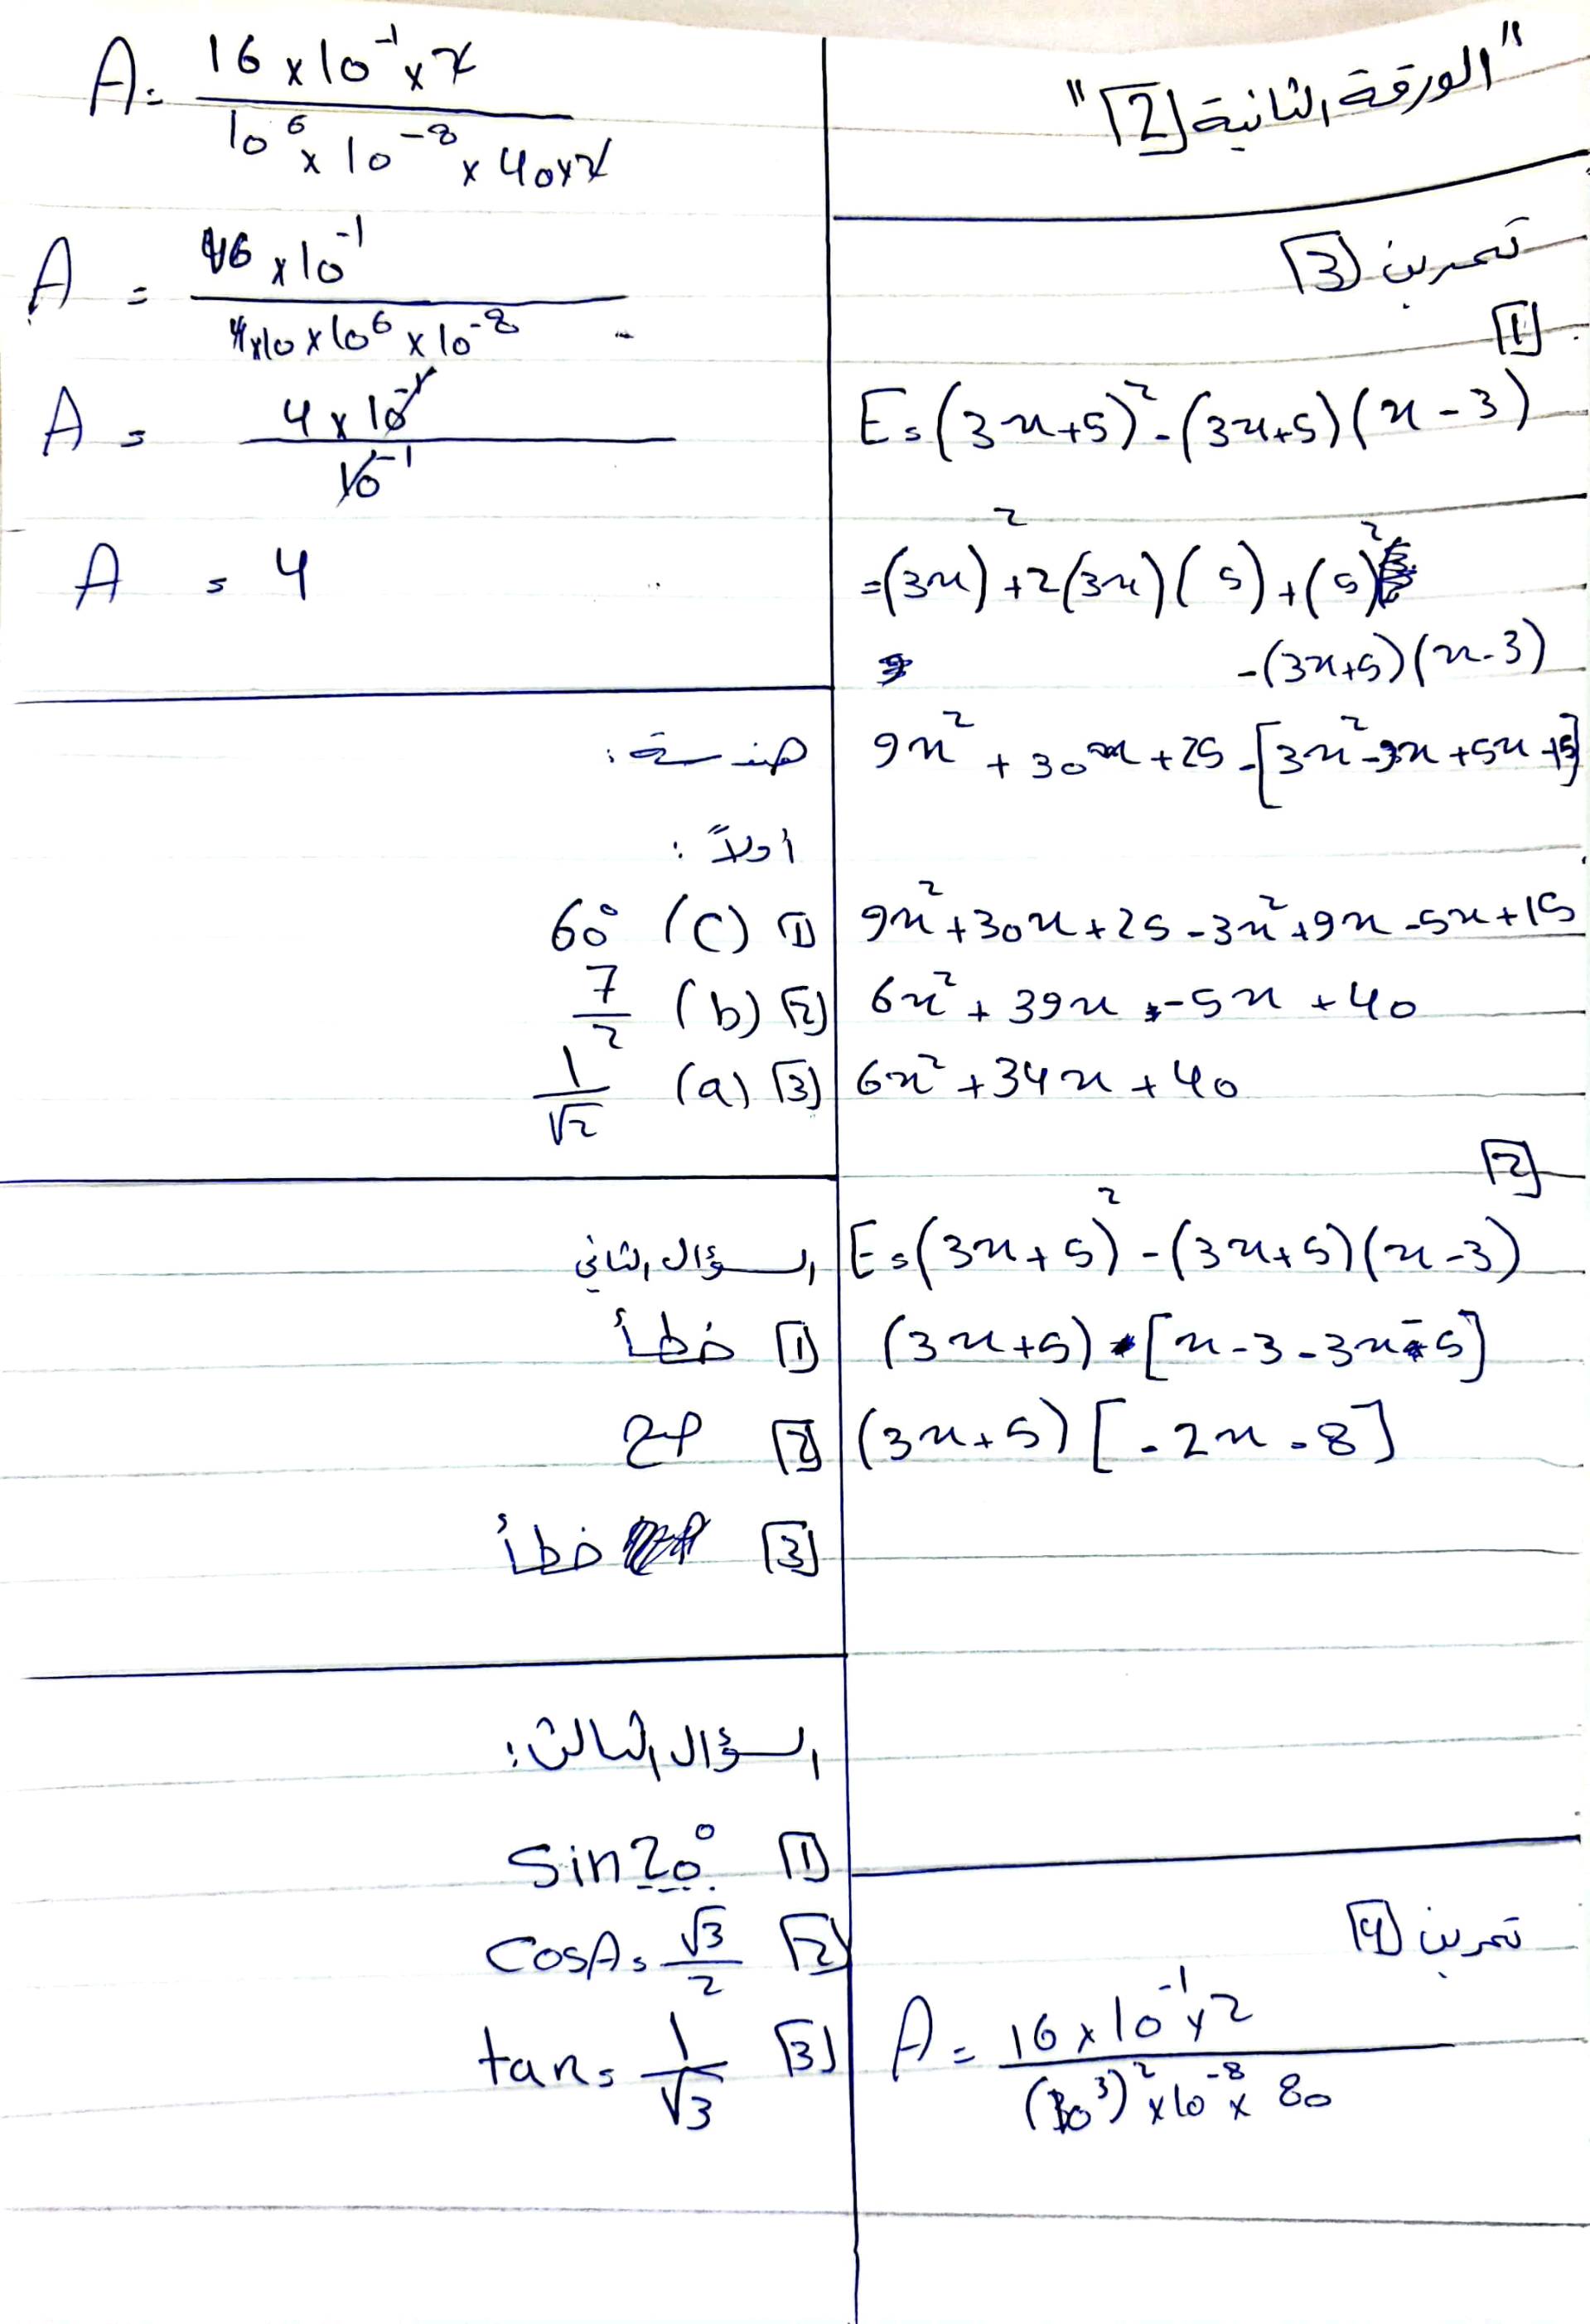 "الورقة الثانية [2]"
تمرين [3]
[1]
E = (3x+5)² - (3x+5)(x-3)
= (3x)² + 2(3x)(5) + (5)²
-(3x+5)(x-3)
9x² + 30x + 25 - [3x² - 9x + 5x + 15]
9x² + 30x + 25 - 3x² + 9x - 5x + 15
6x² + 39x - 5x + 40
6x² + 34x + 40
[2]
E = (3x+5)² - (3x+5)(x-3)
(3x+5) [x-3-3x-5]
(3x+5) [-2x-8]
تمرين [4]
A = 16 × 10⁻¹ × 2 / (10³)² × 10⁻⁸ × 80
A = 16 × 10⁻¹ × 2 / 10⁶ × 10⁻⁸ × 40 × 2
A = 16 × 10⁻¹ / 4 × 10 × 10⁶ × 10⁻⁸
A = 4 × 10⁻¹ / 10⁻¹
A = 4
هندسة:
أولاً:
[1] (c) 60°
[2] (b) 7/2
[3] (a) 1/√2
السؤال الثاني
[1] خطأ
[2] صح
[3] خطأ
السؤال الثالث:
[1] sin 20°
[2] cosA = √3/2
[3] tan = 1/√3